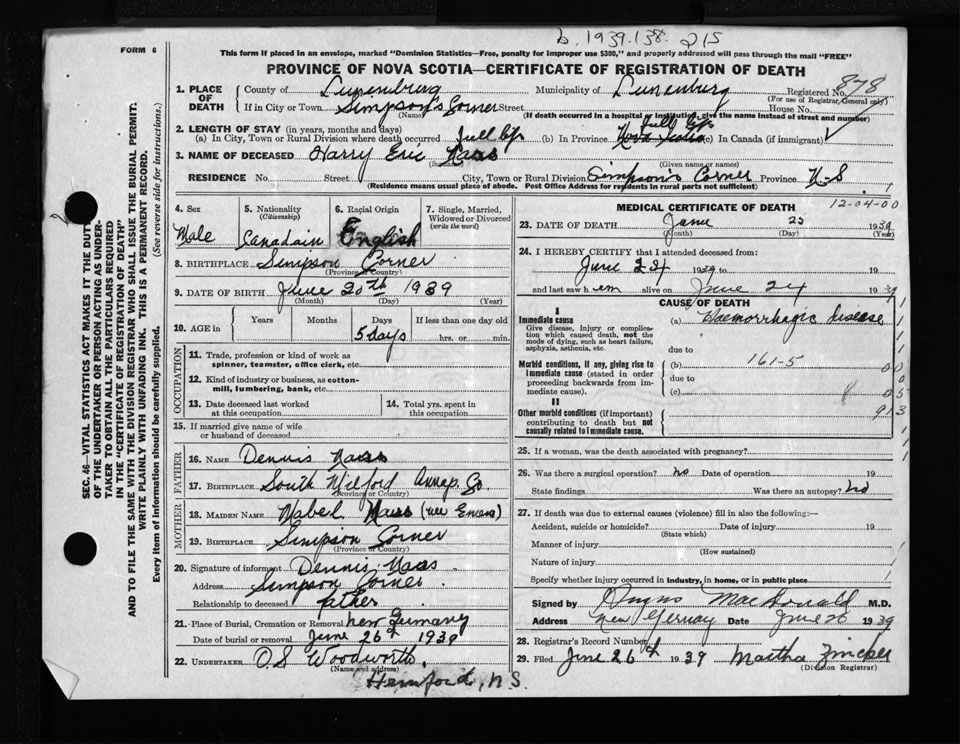 b. 1939.138. 215
FORM 6
This form if placed in an envelope, marked "Dominion Statistics—Free, penalty for improper use $300," and properly addressed will pass through the mail "FREE"
PROVINCE OF NOVA SCOTIA—CERTIFICATE OF REGISTRATION OF DEATH
1. PLACE OF DEATH
County of Lunenburg Municipality of Lunenburg Registered No. 878
(For use of Registrar General only)
If in City or Town Simpson's Corner Street House No.
(Name) (If death occurred in a hospital or institution, give the name instead of street and number)
2. LENGTH OF STAY (in years, months and days)
(a) In City, Town or Rural Division where death occurred full life (b) In Province full life Nova Scotia (c) In Canada (if immigrant)
3. NAME OF DECEASED Harry Eric Naas
(Given name or names)
RESIDENCE No. Street City, Town or Rural Division Simpson's Corner Province N-S.
(Residence means usual place of abode. Post Office Address for residents in rural parts not sufficient)
SEC. 46—VITAL STATISTICS ACT MAKES IT THE DUTY
OF THE UNDERTAKER OR PERSON ACTING AS UNDER-
TAKER TO OBTAIN ALL THE PARTICULARS REQUIRED
IN THE "CERTIFICATE OF REGISTRATION OF DEATH"
AND TO FILE THE SAME WITH THE DIVISION REGISTRAR WHO SHALL ISSUE THE BURIAL PERMIT.
WRITE PLAINLY WITH UNFADING INK. THIS IS A PERMANENT RECORD.
Every item of Information should be carefully supplied. (See reverse side for instructions.)
4. Sex
Male
5. Nationality
(Citizenship)
Canadain
6. Racial Origin
English
7. Single, Married,
Widowed or Divorced
(write the word)
8. BIRTHPLACE Simpson Corner
(Province or Country)
9. DATE OF BIRTH June 20th 1939
(Month) (Day) (Year)
10. AGE in Years Months Days If less than one day old
5 days hrs. or min.
OCCUPATION
11. Trade, profession or kind of work as
spinner, teamster, office clerk, etc.
12. Kind of industry or business, as cotton-
mill, lumbering, bank, etc.
13. Date deceased last worked
at this occupation
14. Total yrs. spent in
this occupation
15. If married give name of wife
or husband of deceased
FATHER
16. NAME Dennis Naas
17. BIRTHPLACE South Milford Annap. Co.
(Province or Country)
MOTHER
18. MAIDEN NAME Mabel Naas (nee
19. BIRTHPLACE Simpson Corner
(Province or Country)
20. Signature of informant Dennis Naas
Address Simpson Corner
Relationship to deceased father
21. Place of Burial, Cremation or Removal new Germany
Date of burial or removal June 26th 1939
22. UNDERTAKER O.S Woodworth.
(Name and address)
Hemford, N S.
MEDICAL CERTIFICATE OF DEATH
12-04-00
23. DATE OF DEATH June 25 1939
(Month) (Day) (Year)
24. I HEREBY CERTIFY that I attended deceased from:
June 24 1939 to 19
and last saw h em alive on June 24 1939
CAUSE OF DEATH
I
Immediate cause
Give disease, injury or complica-
tion which caused death, not the
mode of dying, such as heart failure,
asphyxia, asthenia, etc.
(a) Haemorrhagic disease
due to
Morbid conditions, if any, giving rise to
immediate cause (stated in order
proceeding backwards from im-
mediate cause).
(b) 161-5
due to
(c)
II
Other morbid conditions (if important)
contributing to death but not
causally related to immediate cause.
25. If a woman, was the death associated with pregnancy?
26. Was there a surgical operation? no Date of operation 19
State findings Was there an autopsy? no
27. If death was due to external causes (violence) fill in also the following:—
Accident, suicide or homicide? Date of injury 19
(State which)
Manner of injury
(How sustained)
Nature of injury
Specify whether injury occurred in industry, in home, or in public place
Signed by Angus MacDonald M.D.
Address New Germany Date June 26 1939
28. Registrar's Record Number
29. Filed June 26th 1939 Martha Zincker
(Division Registrar)